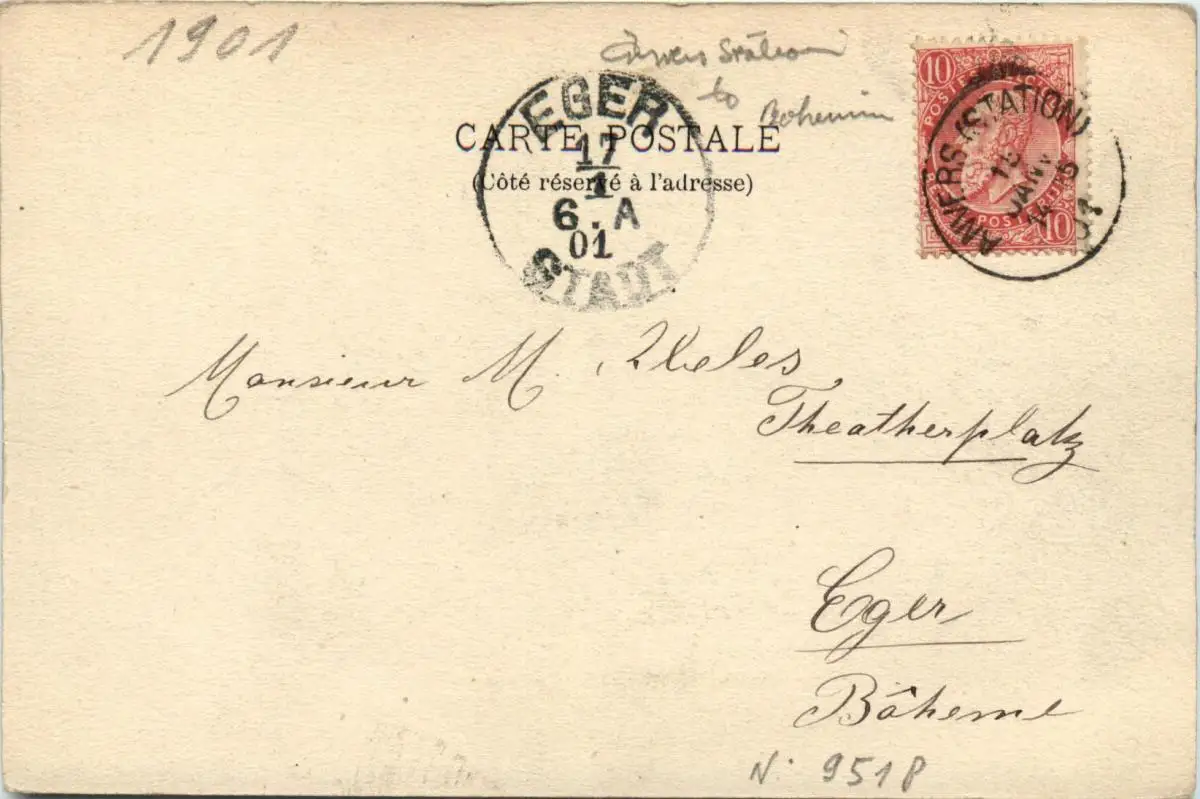 1901
Anvers Station
to
Bohemia
CARTE POSTALE
(Côté réservé à l'adresse)
EGER
17
1
6. A
01
STADT
10
POSTERIJEN
10
ANVERS (STATION)
15
JANV
01
Monsieur M.
Theatherplatz
Eger
Bôheme
N. 9518